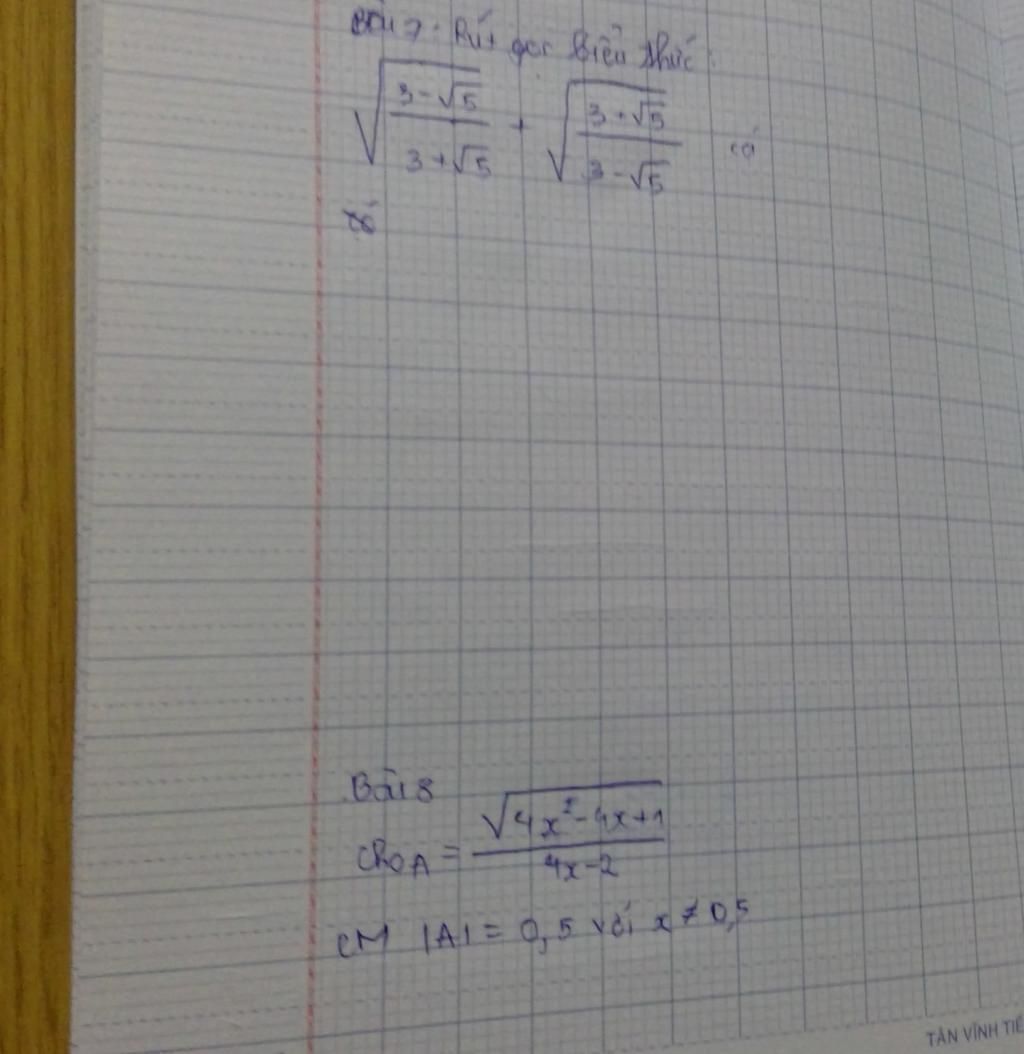 Bài 7: Rút gọn biểu thức:
√((3-√5)/(3+√5)) + √((3+√5)/(3-√5)) có
số
Bài 8
Cho A = √(4x²-4x+1)/(4x-2)
CM |A| = 0,5 với x ≠ 0,5
TÂN VĨNH TIẾ